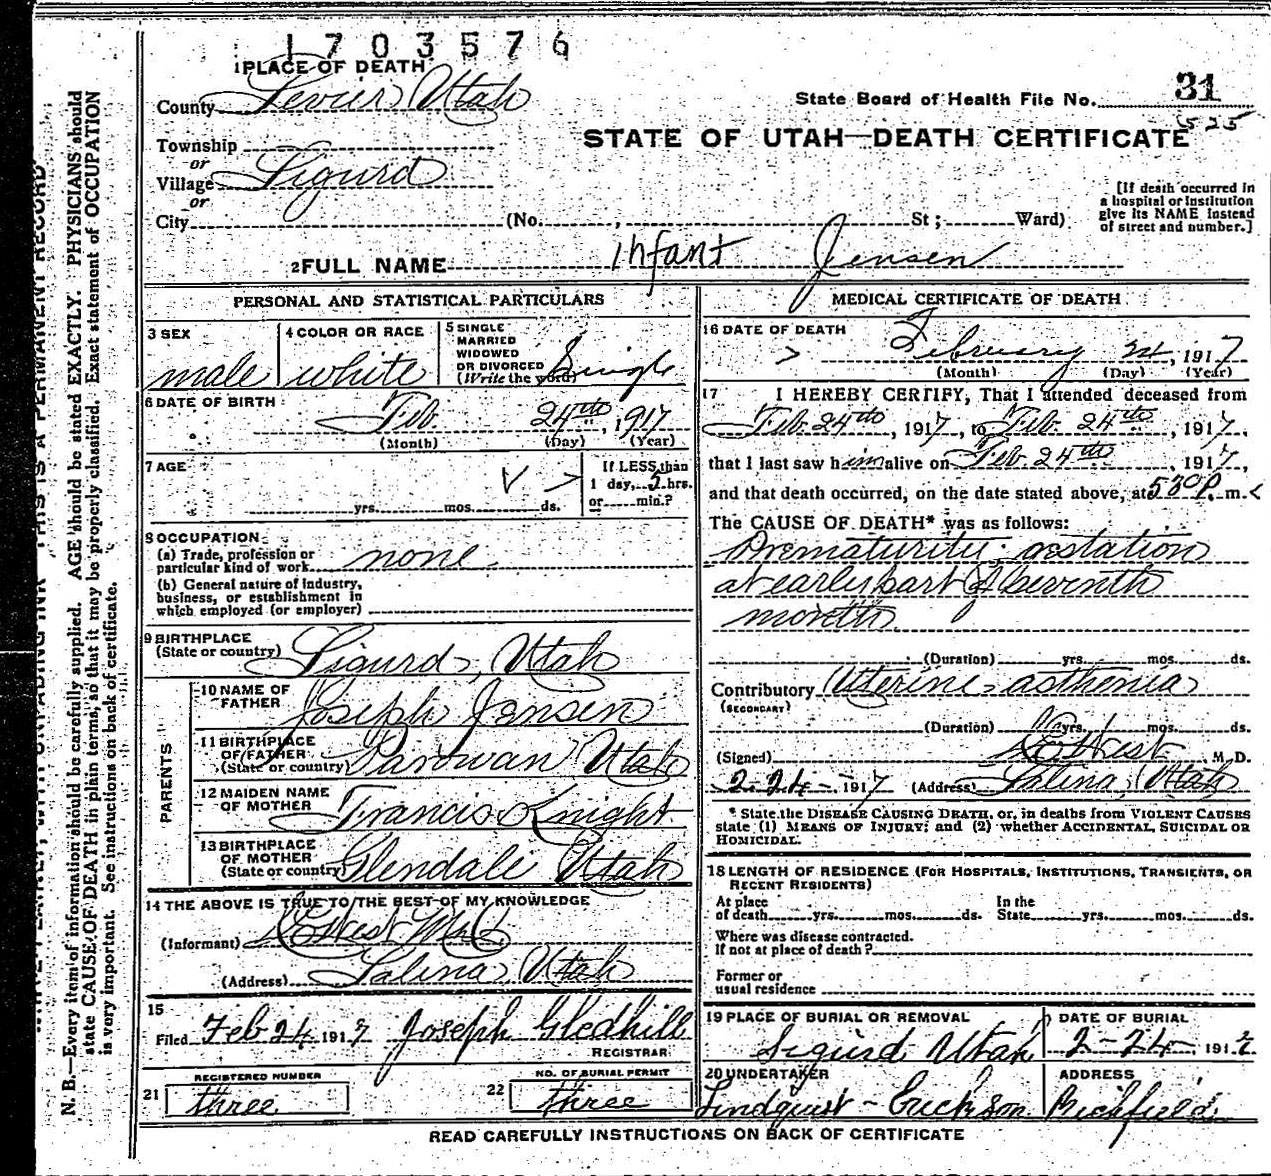 1703576
1 PLACE OF DEATH
County Sevier Utah
State Board of Health File No. 31
525
STATE OF UTAH—DEATH CERTIFICATE
Township
or
Village Sigurd
or
City (No. , St; Ward)
[If death occurred in
a hospital or institution
give its NAME instead
of street and number.]
2 FULL NAME Infant Jensen
PERSONAL AND STATISTICAL PARTICULARS
3 SEX
male
4 COLOR OR RACE
white
5 SINGLE
MARRIED
WIDOWED
OR DIVORCED
(Write the word) Single
6 DATE OF BIRTH
Feb. 24th, 1917
(Month) (Day) (Year)
7 AGE
yrs. mos. ds.
If LESS than
1 day, 5 hrs.
or min.?
8 OCCUPATION
(a) Trade, profession or
particular kind of work none
(b) General nature of industry,
business, or establishment in
which employed (or employer)
9 BIRTHPLACE
(State or country) Sigurd, Utah
PARENTS
10 NAME OF
FATHER Joseph Jensen
11 BIRTHPLACE
OF FATHER
(State or country) Parowan Utah
12 MAIDEN NAME
OF MOTHER Francis Knight
13 BIRTHPLACE
OF MOTHER
(State or country) Glendale Utah
14 THE ABOVE IS TRUE TO THE BEST OF MY KNOWLEDGE
(Informant) West M.D.
(Address) Salina, Utah
15
Filed Feb 24 1917 Joseph Gledhill
REGISTRAR
21 REGISTERED NUMBER
three
22 NO. OF BURIAL PERMIT
three
MEDICAL CERTIFICATE OF DEATH
16 DATE OF DEATH
February 24, 1917
(Month) (Day) (Year)
17 I HEREBY CERTIFY, That I attended deceased from
Feb. 24th, 1917, to Feb. 24th, 1917,
that I last saw him alive on Feb. 24th, 1917,
and that death occurred, on the date stated above, at 530 P. m.
The CAUSE OF DEATH* was as follows:
Prematurity; gestation
at early part of seventh
month
(Duration) yrs. mos. ds.
Contributory Uterine asthenia
(SECONDARY)
(Duration) yrs. mos. ds.
(Signed) West M.D.
2-24-1917 (Address) Salina, Utah
* State the DISEASE CAUSING DEATH, or, in deaths from VIOLENT CAUSES
state (1) MEANS OF INJURY; and (2) whether ACCIDENTAL, SUICIDAL OR
HOMICIDAL.
18 LENGTH OF RESIDENCE (FOR HOSPITALS, INSTITUTIONS, TRANSIENTS, OR
RECENT RESIDENTS)
At place
of death yrs. mos. ds.
In the
State yrs. mos. ds.
Where was disease contracted.
If not at place of death?
Former or
usual residence
19 PLACE OF BURIAL OR REMOVAL
Sigurd Utah
DATE OF BURIAL
2-24-1917
20 UNDERTAKER
Lindquist - Erickson
ADDRESS
Richfield
READ CAREFULLY INSTRUCTIONS ON BACK OF CERTIFICATE
N. B.—Every item of information should be carefully supplied. AGE should be stated EXACTLY. PHYSICIANS should
state CAUSE OF DEATH in plain terms, so that it may be properly classified. Exact statement of OCCUPATION
is very important. See instructions on back of certificate.